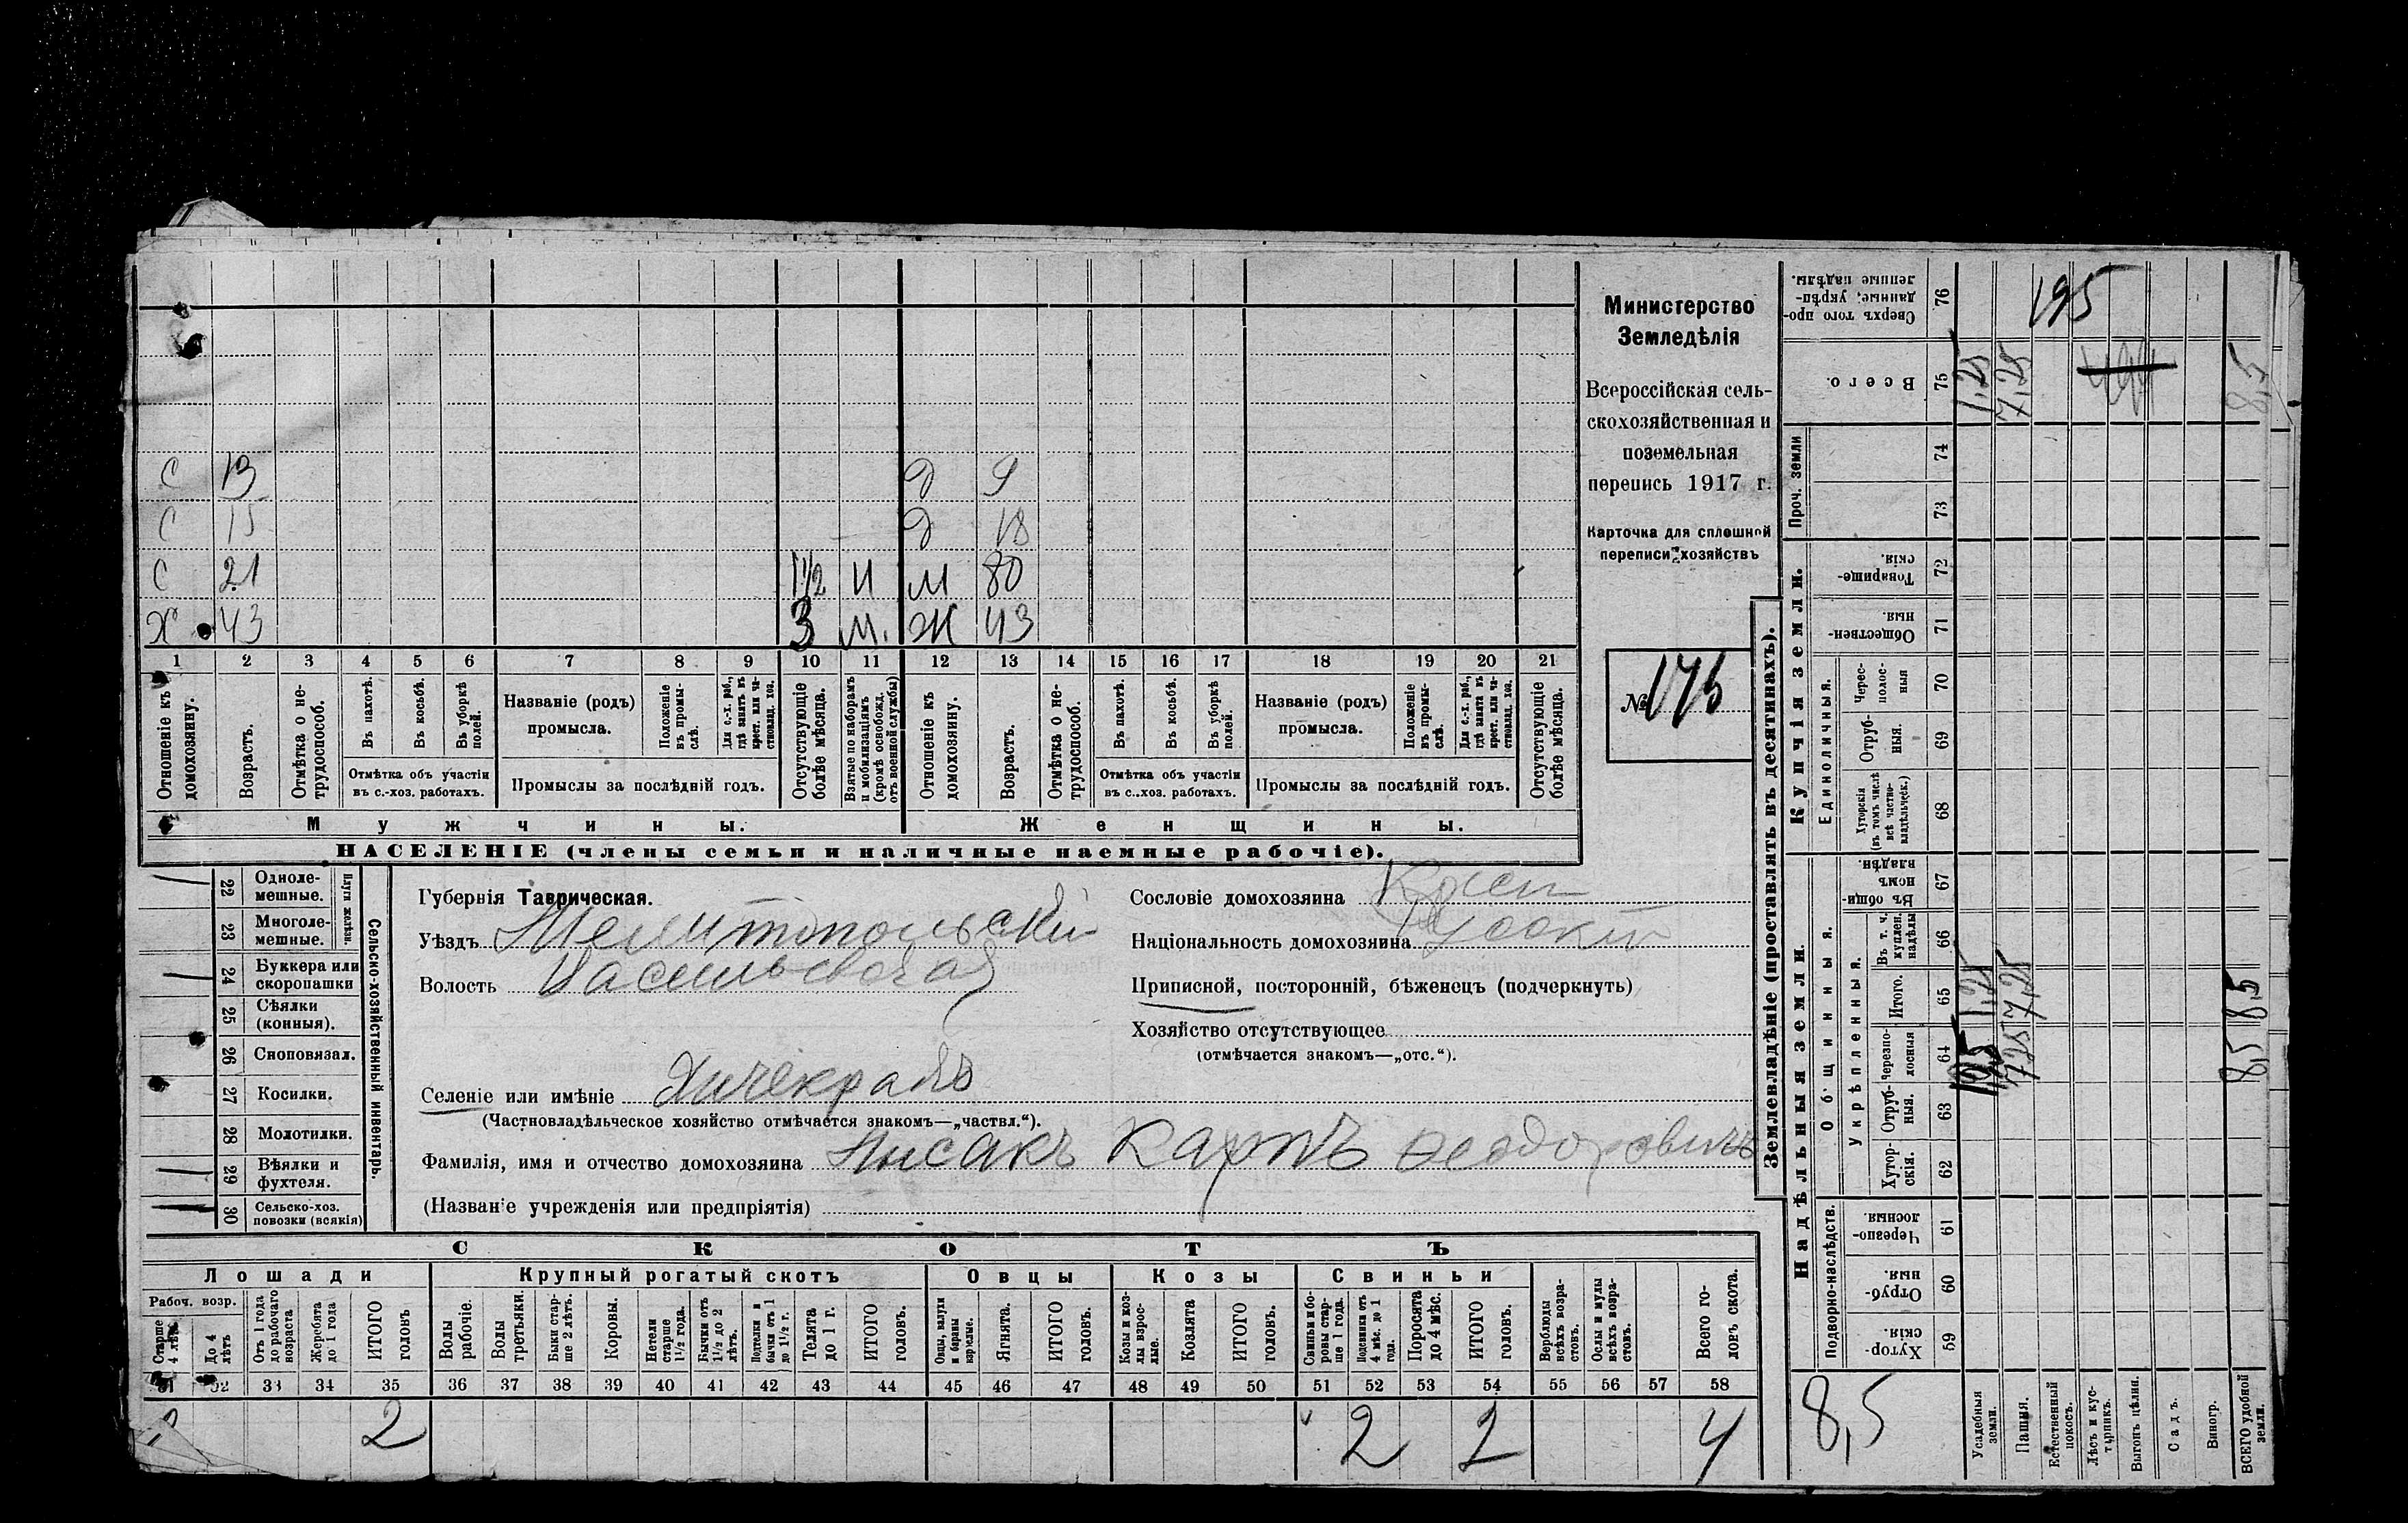 С 13 Д 9
С 15 Д 18
С 21 1 1/2 М 80
Х 43 3 М. Ж 43
1 2 3 4 5 6 7 8 9 10 11 12 13 14 15 16 17 18 19 20 21
Отношеніе къ домохозяину.
Возрастъ.
Отмѣтка о не-трудоспособ.
Въ пахотѣ.
Въ косьбѣ.
Въ уборкѣ полей.
Отмѣтка объ участіи
въ с.-хоз. работахъ.
Названіе (родъ)
промысла.
Положеніе въ промы-слѣ.
Для с.-х. раб., гдѣ занятъ въ крест. или ча-стновлад. хоз.
Промыслы за послѣдній годъ.
Отсутствующіе болѣе мѣсяца.
Взятые по наборамъ и мобилизаціямъ (кромѣ освобожд. отъ военной службы)
Отношеніе къ домохозяину.
Возрастъ.
Отмѣтка о не-трудоспособ.
Въ пахотѣ.
Въ косьбѣ.
Въ уборкѣ полей.
Отмѣтка объ участіи
въ с.-хоз. работахъ.
Названіе (родъ)
промысла.
Положеніе въ промы-слѣ.
Для с.-х. раб., гдѣ занята въ крест. или ча-стновлад. хоз.
Промыслы за послѣдній годъ.
Отсутствующіе болѣе мѣсяца.
Мужчины. Женщины.
НАСЕЛЕНІЕ (члены семьи и наличные наемные рабочіе).
Министерство
Земледѣлія
Всероссійская сель-
скохозяйственная и
поземельная
перепись 1917 г.
Карточка для сплошной
переписи хозяйствъ
№ 175
22 Одноле-мешные.
23 Многоле-мешные.
Плуги желѣзн.
24 Буккера или скоропашки
25 Сѣялки (конныя).
26 Сноповязал.
27 Косилки.
28 Молотилки.
29 Вѣялки и фухтеля.
30 Сельско-хоз. повозки (всякія)
Сельско-хозяйственный инвентарь.
Губернія Таврическая.
Уѣздъ Мелитопольскій
Волость Васильевская
Селеніе или имѣніе
(Частновладѣльческое хозяйство отмѣчается знакомъ—„частвл.“).
Фамилія, имя и отчество домохозяина Лысакъ Карпъ Феодоровичъ
(Названіе учрежденія или предпріятія)
Сословіе домохозяина
Національность домохозяина
Приписной, посторонній, бѣженецъ (подчеркнуть)
Хозяйство отсутствующее
(отмѣчается знакомъ—„отс.“).
СКОТЪ
Лошади Крупный рогатый скотъ Овцы Козы Свиньи
Рабоч. возр.
Старше 4 лѣтъ
До 4 лѣтъ
Отъ 1 года до рабочаго возраста
Жеребята до 1 года
ИТОГО головъ
Волы рабочіе.
Волы третьяки.
Быки стар-ше 2 лѣтъ.
Коровы.
Нетели старше 1 1/2 года.
Бычки отъ 1 1/2 до 2 лѣтъ.
Подтелки и бычки отъ 1 до 1 1/2 г.
Телята до 1 г.
ИТОГО головъ.
Овцы, валухи и бараны взрослые.
Ягнята.
ИТОГО головъ.
Козы и коз-лы взрос-лые.
Козлята
ИТОГО головъ.
Свиньи и бо-ровы стар-ше 1 года.
Подсвинки отъ 4 мѣс. до 1 года.
Поросята до 4 мѣс.
ИТОГО головъ.
Верблюды всѣхъ возра-стовъ.
Ослы и мулы всѣхъ возра-стовъ.
Всего го-ловъ скота.
31 32 33 34 35 36 37 38 39 40 41 42 43 44 45 46 47 48 49 50 51 52 53 54 55 56 57 58
2 2 2 4
Землевладѣніе (проставлять въ десятинахъ).
Надѣльныя земли. Купчія земли. Проч. земли
Подворно-наслѣдств.
Общинныя.
Укрѣпленныя.
Единоличныя.
Хутор-скія. 59
Отруб-ныя. 60
Черезпо-лосныя. 61
Хутор-скія. 62
Отруб-ныя. 63
Черезпо-лосныя 64
Итого. 65
Въ т. ч. куплен. надѣлы 66
Въ общи-номъ владѣн. 67
Хуторскія (въ томъ числѣ всѣ частно-владѣльческ.) 68
Отруб-ныя. 69
Черес-полос-ныя 70
Обществен-ныя. 71
Товарище-скія. 72
73
74
Всего. 75
Сверхъ того про-данные, укрѣп-ленные надѣлы. 76
Усадебныя земли.
1,25 1,25
Пашня.
7,25 7,25 7,25
Естественный покосъ.
Лѣсъ и кус-тарникъ.
Выгонъ цѣлин.
Садъ.
Виногр.
ВСЕГО удобной земли.
8,5 8,5 8,5
195
8,5